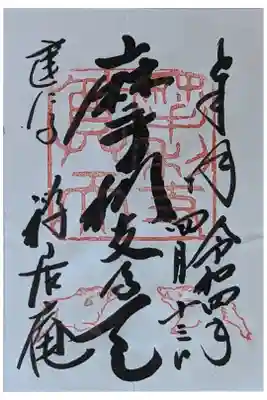 奉拝
令和四年
四月十三日
摩利支尊天
建仁寺
禅居庵